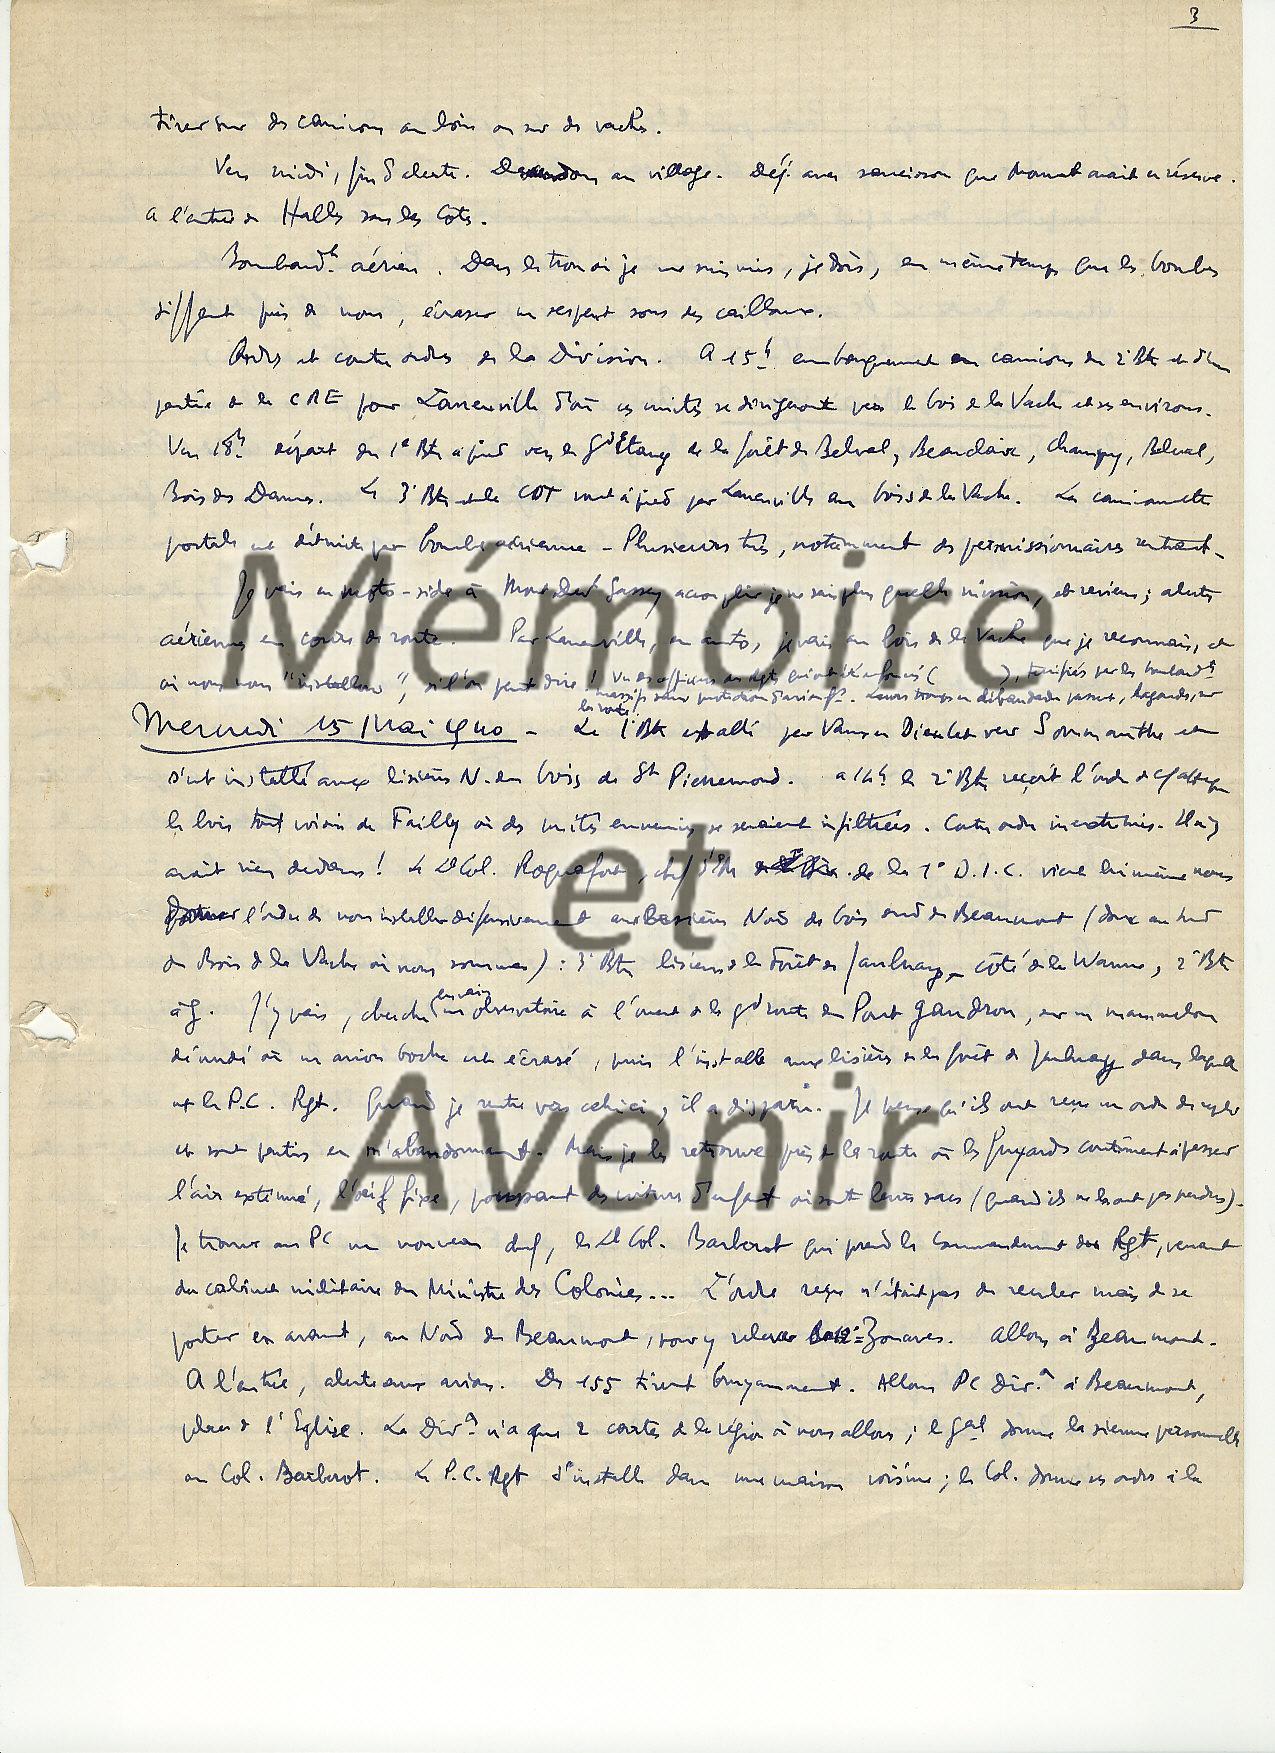 3
tirer sur des camions au loin ou sur des vaches.
Vers midi, fin d'alerte. Descendons au village. Déj. avec saucisson que avait en réserve.
A l'entrée de Halles sous les Côtes.
Bombardt aérien. Dans le trou où je me suis mis, je dois, en même temps que les bombes
sifflent près de nous, écraser un serpent sous des cailloux.
Ordres et contre ordres de la Division. A 15h embarquement en camions du 2e Btn et d'une
partie de la CRE pour Laneuville d'où ces unités se dirigeront vers le bois de la Vache et ses environs.
Vers 18h départ du 1e Btn à pied vers le Gd Etang de la forêt de Belval, Beauclair, Champy, Belval,
Bois des Dames. Le 3e Btn et la CDT vont à pied par Laneuville au bois de la Vache. La camionnette
postale est détruite par bombe aérienne - Plusieurs tués, notamment des permissionnaires rentrant -
Je vais en moto-side à Mont devt Sassey accomplir je ne sais plus quelle mission, et reviens ; alertes
aériennes en cours de route. Par Laneuville, en auto, je vais au bois de la Vache que je reconnais, et
où nous nous "installons", si l'on peut dire ! Vu des officiers des Rgts qui ont été enfoncés ( ), terrifiés par les bombardts
massifs sans protection d'avions frs. Leurs troupes en débandade passent, hagardes, sur
les routes.
Mercredi 15 Mai 1940 - Le 1e Btn est allé par Vaux en Dieulet vers Sommauthe et
s'est installé aux lisières N. du bois de St Pierremont. A 14h le 2e Btn reçoit l'ordre d'attaquer
le bois tout voisin de Failly où des unités ennemies se seraient infiltrées. Contre ordre in extremis. Il n'y
avait rien dedans ! Le Lt Col. Roquefort, chef d'EM de la 1e D.I.C. vient lui même nous
donner l'ordre de nous installer défensivement aux lisières Nord des bois sud de Beaumont (donc au sud
du Bois de la Vache où nous sommes) : 3e Btn lisières de la Forêt de Jaulnay côté de la Wamme, 2e Btn
à g. J'y vais, cherche en vain un observatoire à l'ouest de la gd route du Pont Gaudron, sur un mamelon
dénudé où un avion boche est écrasé, puis l'installe aux lisières de la forêt de Jaulnay dans laquelle
est le P.C. Rgt. Quand je rentre vers celui ci, il a disparu. Je pense qu'ils ont reçu un ordre de repli
et sont partis en m'abandonnant. Mais je les retrouve près de la route où les fuyards continuent à passer
l'air exténué, l'œil fixe, poussant des voitures d'enfant où sont leurs sacs (quand ils ne les ont pas perdus).
Je trouve au PC un nouveau chef, le Lt Col. Barberot qui prend le commandement du Rgt, venant
du cabinet militaire du Ministre des Colonies... L'ordre reçu n'était pas de reculer mais de se
porter en avant, au Nord de Beaumont, pour y relever le 12e Zouaves. Allons à Beaumont.
A l'entrée, alerte aux avions. Des 155 tirent bruyamment. Allons PC Divon à Beaumont,
place de l'Eglise. La Divon n'a que 2 cartes de la région où nous allons ; le Gal donne la sienne personnelle
au Col. Barberot. Le P.C. Rgt s'installe dans une maison voisine ; le Col. donne ses ordres à la
Mémoire
et
Avenir